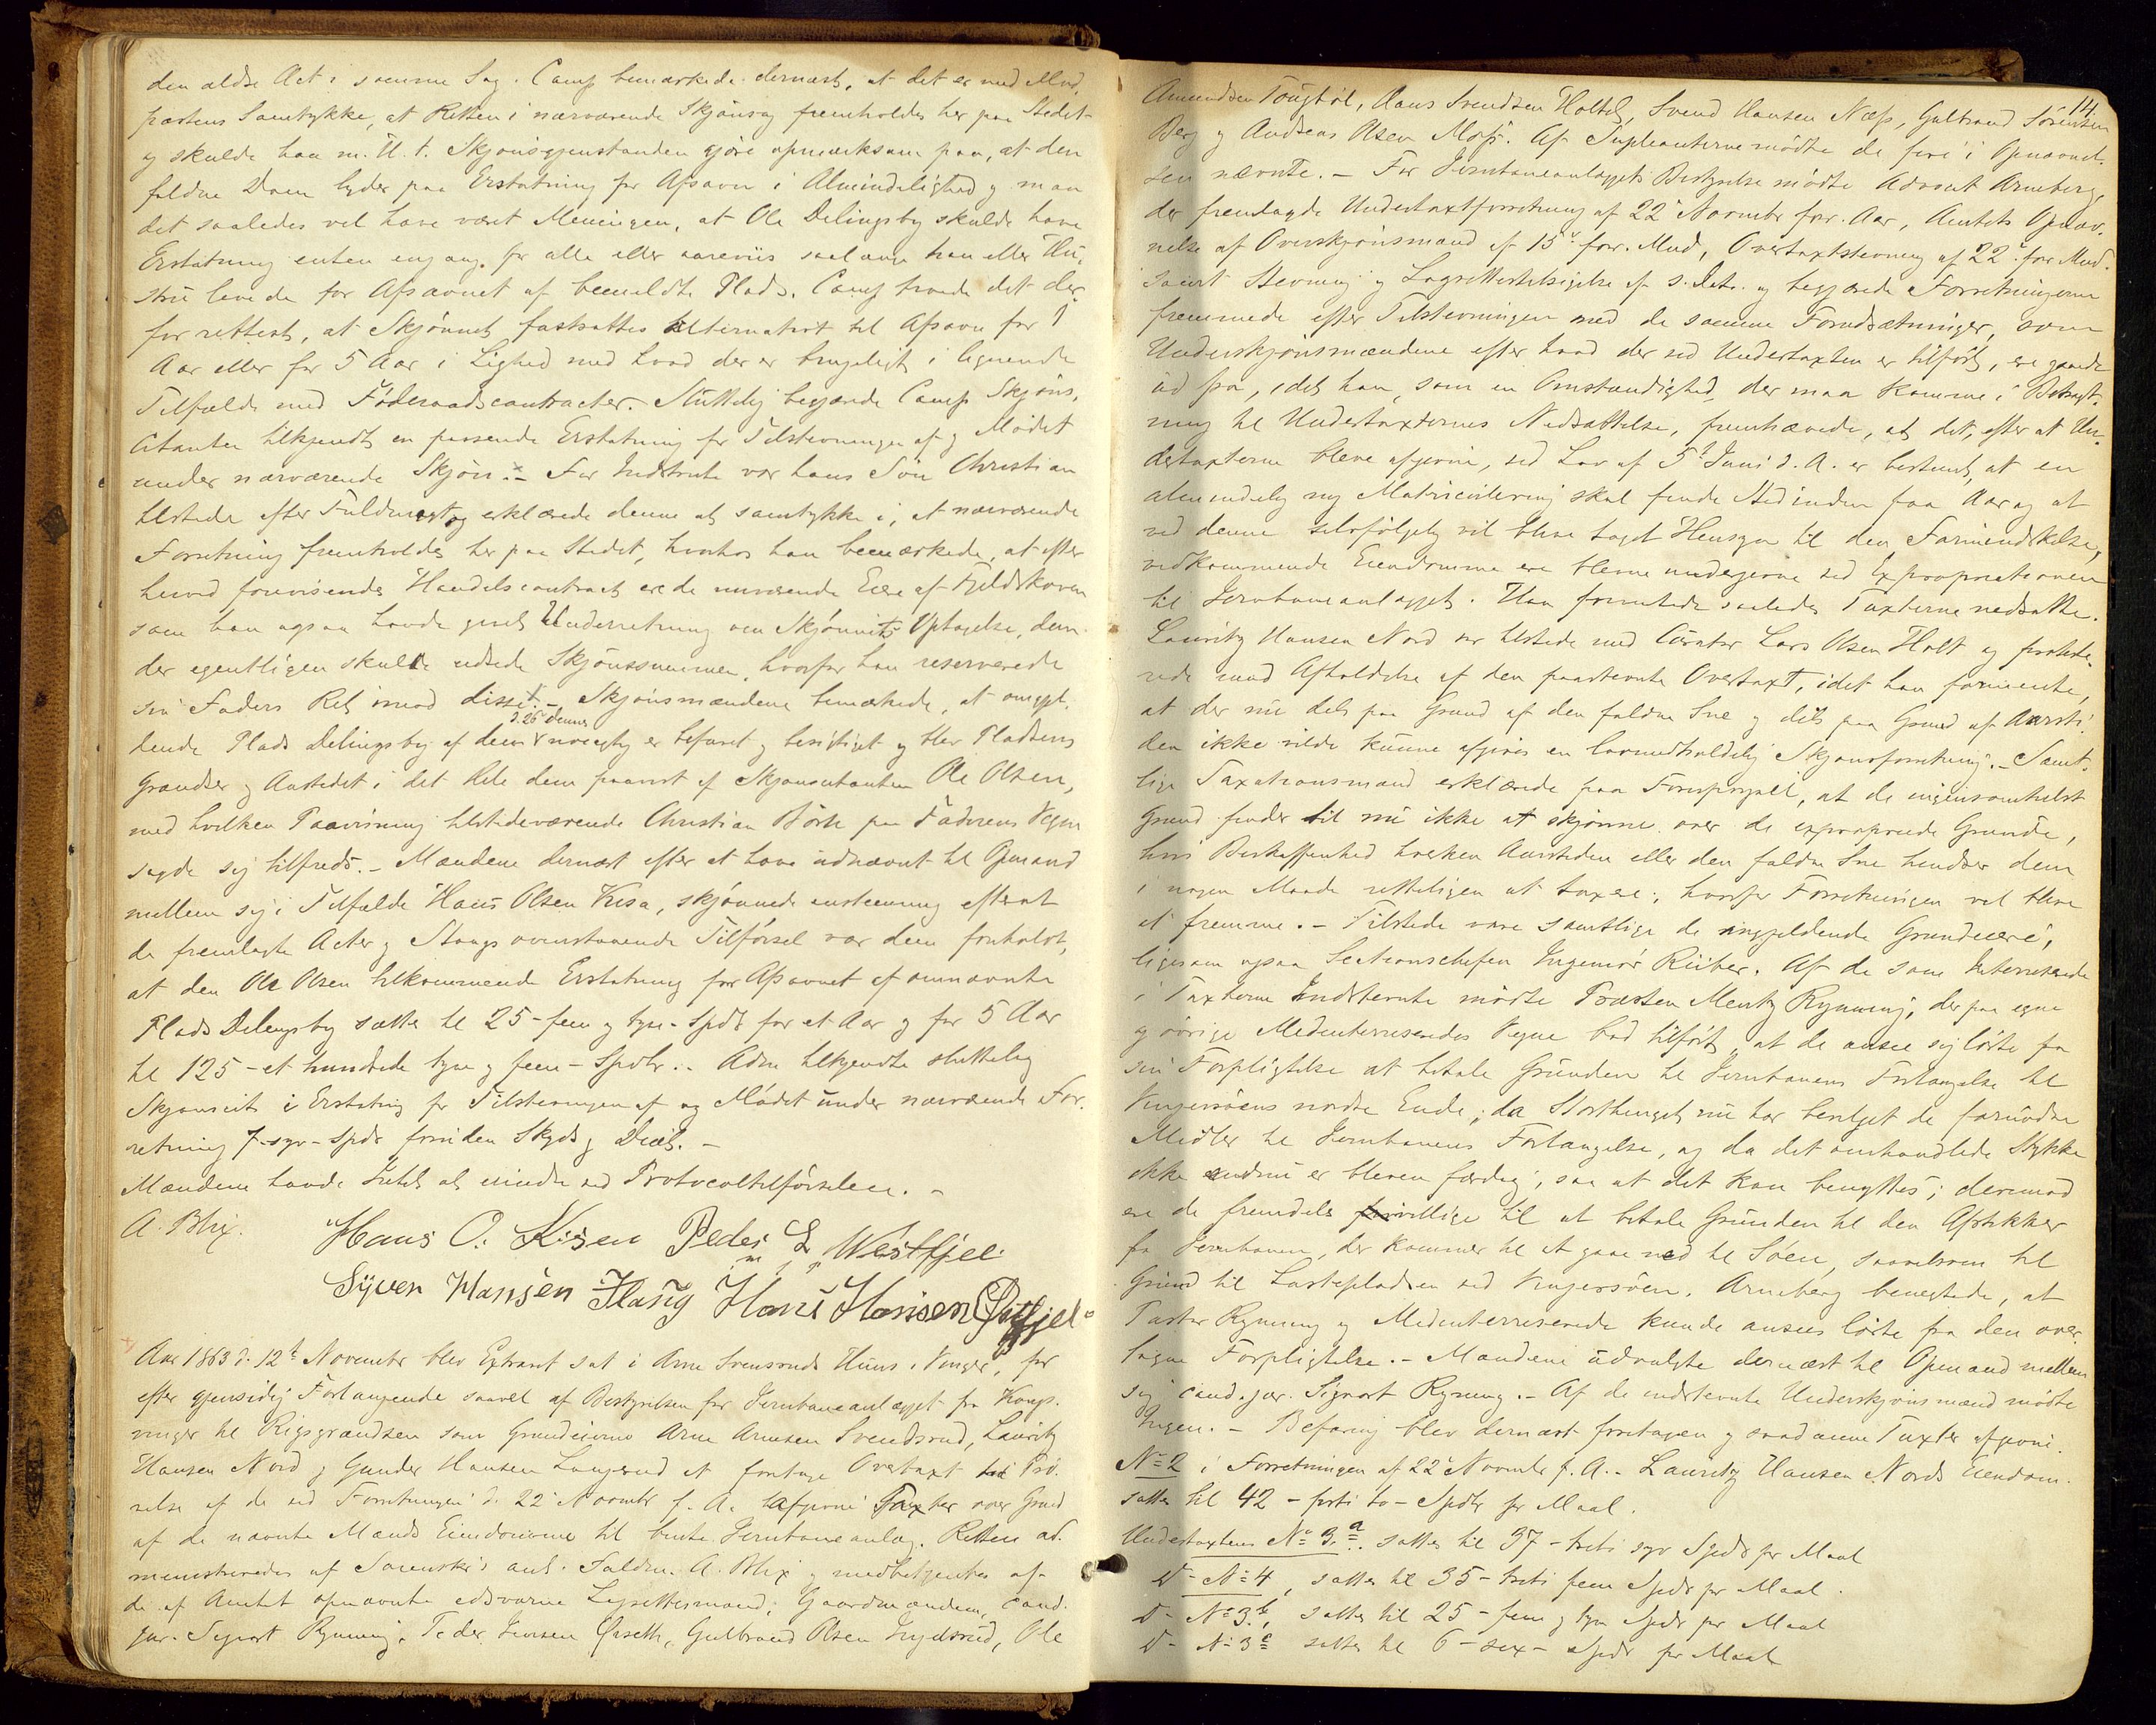 den ældre Act i samme Sag. Camp bemærkede dernæst, at det er med Mod-
partens Samtykke, at Retten i nærværende Skjønssag fremholdes her paa Stedet
og skulde han m. H. t. Skjønsgjenstanden gjøre opmærksom paa, at den
faldne Dom lyder paa Erstatning for Afsavn i Almindelighed og maa
det saaledes vel have været Meningen, at Ole Delingsby skulde have
Erstatning enten engang for alle eller aarviis saalænge han eller Hu-
stru levede for Afsavnet af bemeldte Plads. Camp troede det der-
for rettest, at Skjønnet fastsattes alternativt til Afsavn for 1
Aar eller for 5 Aar i Lighed med hvad der er brugeligt i lignende
Tilfælde med Føderaadscontracter. Sluttelig begjærede Camp Skjøns-
citanten tilkjendt en passende Erstatning for Tilstevningen af og Mødet
under nærværende Skjøn. - For Indstevnte var hans Søn Christian
tilstede efter Fuldmagt og erklærede denne at samtykke i, at nærværende
Forretning fremholdes her paa Stedet, hvorhos han bemærkede, at efter
herved forevisende Handelscontract ere de nuværende Eiere af Fjeldskoven
som han ogsaa havde givet Underretning om Skjønnets Optagelse, dem
der egentligen skulde udrede Skjønssummen, hvorfor han reserverede
sin Faders Ret imod disse. - Skjønsmændene bemærkede, at omgjæl-
d. 26 dennes
dende Plads Delingsby af dem noiagtig er befaret og besigtiget og blev Pladsens
Grændser og Aastedet i det Hele dem paavist af Skjønscitanten Ole Olsen,
med hvilken Paavisning tilstedeværende Christian paa Faderens Vegne
sagde sig tilfreds. - Mændene dernæst efter at have udnævnt til Opmand
mellem sig i Tilfælde Hans Olsen Kisa, skjønnede enstemmig efterat
de fremlagte Acter og Slangs ovenstaaende Tilførsel var dem foreholdt,
at den Ole Olsen tilkommende Erstatning for Afsavnet af omnævnte
Plads Delingsby sættes til 25 - fem og tyve - Spdlr for et Aar og for 5 Aar
til 125 - et hundrede tyve og fem - Spdlr. Adm tilkjendte sluttelig
Skjønscit. i Erstatning for Tilstevningen af og Mødet under nærværende For-
retning 7 - syv - Spdlr foruden Skyds og Diæt. -
Mændene havde Intet at erindre ved Protocoltilførselen. -
A. Blix. Hans O. Kisen Peder L Westfjel
m f P
Syver Hansen Haug Hans Hansen Østfjel
Aar 1863 d. 12te November blev Extraret sat i Arne Svensruds Huus i Vinger, for
efter gjensidig Forlangende saavel af Bestyrelsen for Jernbaneanlægget fra Kongs-
vinger til Rigsgrændsen som Grundeierne Arne Arnesen Svendsrud, Lauritz
Hansen Nord og Gunder Hansen Langerud at foretage Overtaxt til Prø-
velse af de ved Forretningen d. 22 November f. A. afgivne Taxter over Grund
af de nævnte Mænds Eiendomme til bemte Jernbaneanlæg. Retten ad-
ministreredes af Sorenskr's aut. Fuldm. A. Blix og medbetjentes af
de af Amtet opnævnte edsvorne Lagrettesmænd: Gaardmændene, cand.
jur. Sigvart Rynning, Peder Iversen Ørseth, Gulbrand Olsen Ingelsrud, Ole
114.
Amundsen Tougbøl, Hans Svendsen Holtet, Svend Hansen Næss, Gulbrand Sørensen
Berg og Andreas Olsen Moss. Af Supleanterne mødte de fire i Opnævnel-
sen nævnte. - For Jernbaneanlæggets Bestyrelse mødte Advocat Arneberg,
der fremlagde Undertaxtforretning af 22 November forr. Aar, Amtets Opnæv-
nelse af Overskjønsmænd af 15de forr. Mnd, Overtaxtstevning af 22 forr Mnd.
samt Stevning og Lagrettestilsigelse af s. Dato og begjærede Forretningerne
fremmede efter Tilstevningen med de samme Forudsætninger, som
Underskjønsmændene efter hvad der ved Undertaxten er tilført, ere gaaede
ud fra, idet han, som en Omstændighed der maa komme i Betragt-
ning til Undertaxternes Nedsættelse, fremhævede, at det, efter at Un-
dertaxterne bleve afgivne, ved Lov af 5te Juni d. A. er bestemt, at en
almindelig ny Matriculering skal finde Sted inden faa Aar og at
ved denne selvfølgelig vil blive taget Hensyn til den Formindskelse,
vedkommende Eiendomme ere blevne undergivne ved Expropriationen
til Jernbaneanlægget. Han forventede saaledes Taxterne nedsatte.
Lauritz Hansen Nord var tilstede med Curator Lars Olsen Holt og proteste-
rede mod Afholdelse af den paastevnte Overtaxt, idet han formente,
at der nu dels paa Grund af den faldne Sne og dels paa Grund af Aarsti-
den ikke vilde kunne afgives en lovmedholdelig Skjønsforretning. - Samt-
lige Taxationsmænd erklærede paa Forespørgsel, at de ingensomhelst
Grund finder til nu ikke at skjønne over de exproprierede Grunde,
hvis Beskaffenhed hverken Aarstiden eller den faldne Sne hindrer dem
i nogen Maade retteligen at taxere; hvorfor Forretningen vil blive
at fremme. - Tilstede vare samtlige de angjeldende Grundeiere,
ligesom ogsaa Sectionschefen Ingeniør Rüber. Af de som Interesserede
i Taxterne Indstevnte mødte Præsten Mentz Rynning, der paa egne
og øvrige Medinteresseredes Vegne bad tilført, at de ansee sig løste fra
sin Forpligtelse at betale Grunden til Jernbanens Forlængelse til
Vingersøens nordre Ende, da Storthinget nu har bevilget de fornødne
Midler til Jernbanens Forlængelse, og da det omhandlede Stykke
ikke endnu er bleven færdig, saa at det kan benyttes; derimod
ere de fremdeles villige til at betale Grunden til den Afstikker
fra Jernbanen, der kommer til at gaae ned til Søen, saavelsom til
Grund til Lastepladsen ved Vingersøen. Arneberg benegtede, at
Pastor Rynning og Medinterresserede kunde ansees løste fra den over-
tagne Forpligtelse. - Mændene udvalgte dernæst til Opmand mellem
sig cand. jur. Sigvart Rynning. - Af de indstevnte Underskjønsmænd mødte
Ingen. - Befaring blev dernæst foretagen og saadanne Taxter afgivne.
No 2 i Forretningen af 22 Novembr f. A. - Lauritz Hansen Nords Eiendom.
sættes til 42 - forti to - Spdlr pr Maal.
Undertaxtens No 3.a. sættes til 37 - treti syv Spdlr pr Maal
Do No 4, sættes til 35 - treti fem Spdlr pr Maal.
Do No 3b, sættes til 25 - fem og tyve Spdlr pr Maal
Do No 3c sættes til 6 - sex - Spdlr pr Maal